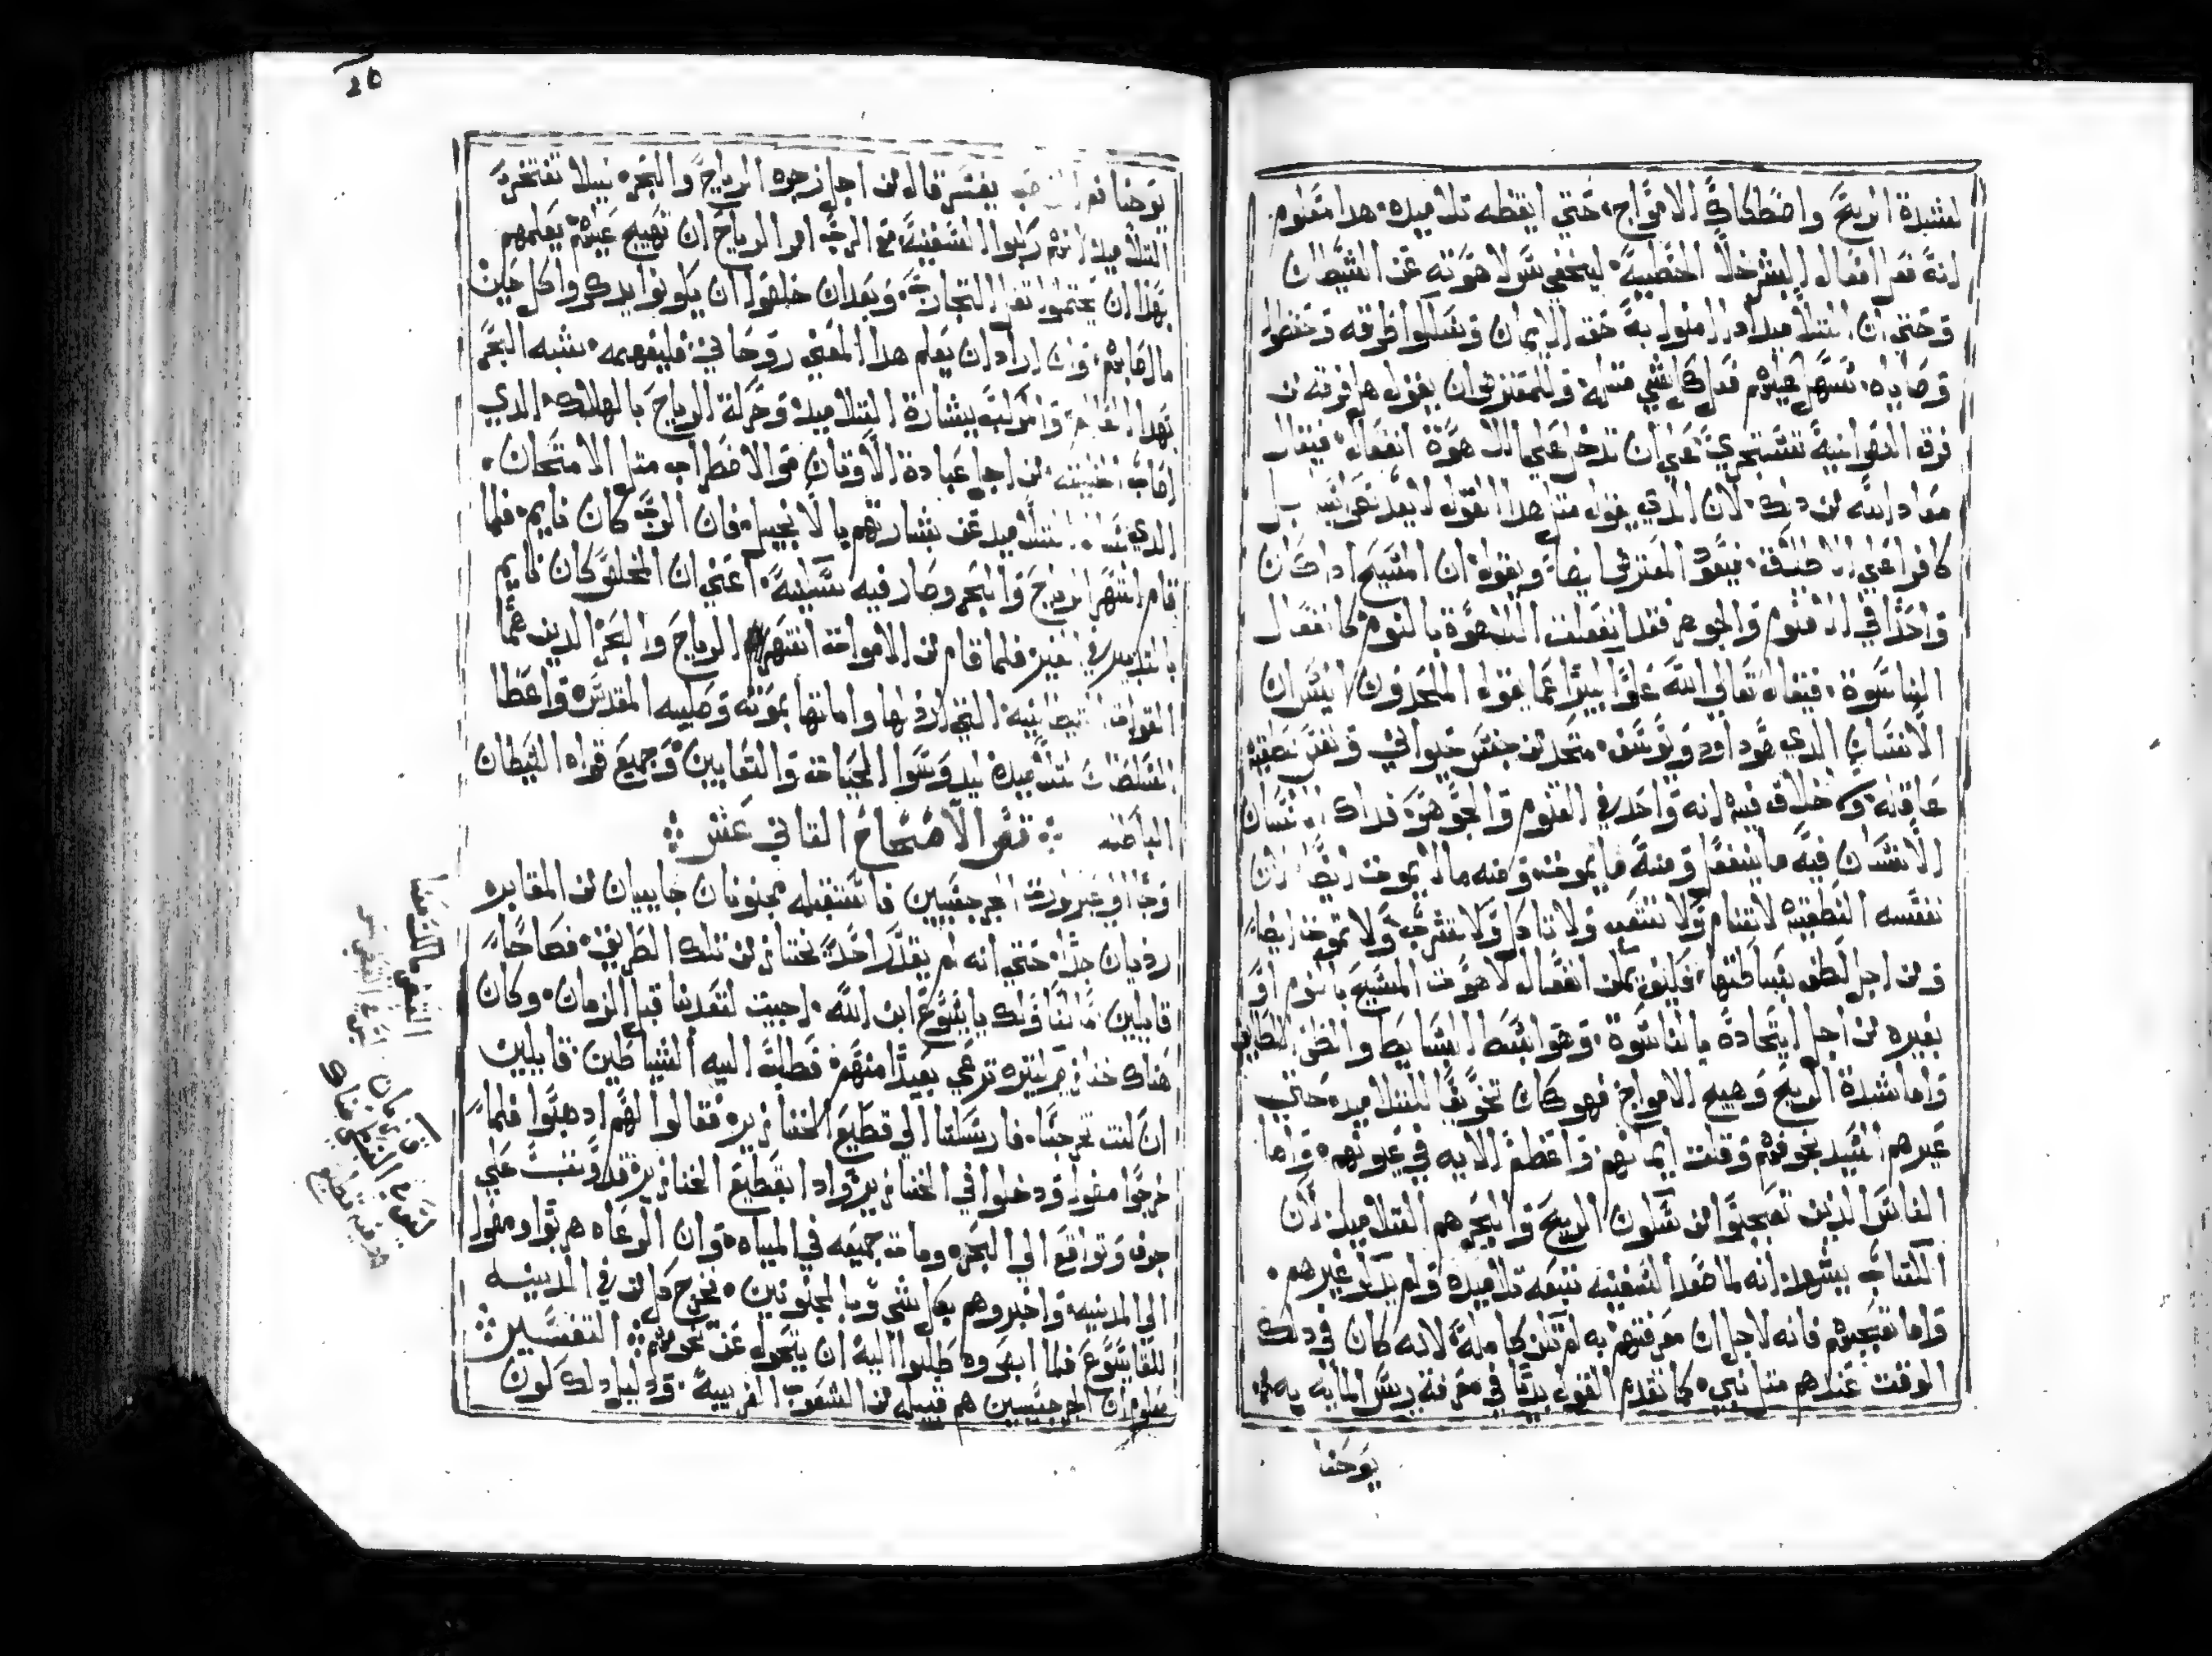 لشدة الريح واضطكاك الامواج، حتي ايقظه تلاميده، هدا معلوم
انه فعل افعال البشر خلا الخطية، ليخفي سر لاهوته عن الشيطان
وحتي ان التلاميد ادا امنوا به حق الايمان وسلكوا طرقه وحفظوا
وصاياه، تسهل عليهم فعل كل شي مثله، وللمعترض ان يقول هل فرقه من
فرق النصرانية تستجري علي ان تدخل علي اللاهوة انفعال، فيقال
معاد الله من دلك، لان الدي يقول مثل هدا القول لا يعد نصرانيا بل
كافرا علي الاطلاق، فيعود المعترض ايضا ويقول ان المسيح ادا كان
واحدا في القنوم والجوهر فقد انفعلت اللاهوة بالنوم كانفعال
الناسوة، فيقال تعالي الله علوا كبيرا عما يقول الملحدون اليس ان
الانسان الدي هو داود ويوسف، متحد من جنس حيواني ونفس نطقية
عاقله، ولا خلاف فيه انه واحد في القنوم والجوهر، فداك الانسان
الانسان فيه ما ينفعل ومنه ما يموت، ومنه ما لا يموت ايضا، لان
نفسه النطقية لا تنام ولا تتعب ولا تاكل ولا تشرب، ولا تموت ايضا
ومن اجل لطف بساطتها، فكيف يمكن انفعال لاهوت المسيح بالنوم او
بغيره من اجل اتحاده بالناسوة، وهو ابسط البسايط والطف اللطايف
واما شدة الريح وهيج الامواج فهو كان تخويفا للتلاميد، حتي
غيرهم السيد بخوفهم وقلت ايمانهم، واعظم الايه في عيونهم، واما
الناس الدين تعجبوا من سكون الريح والبحر هم التلاميد، لان
الكتاب يشهد انه لما صعد السفينه تبعه تلاميده ولم يدكر غيرهم،
واما تعجبهم فانه لاجل ان معرفتهم به لم تكن كاملة لانه كان في دلك
الوقت عندهم مثل نبي، كما تقدم القول بديا في معرفة ريس المايه به
يوحنا
يوحنا فم الدهب يفسر قال من اجل زجره الرياح والبحر، ليلا تفتخر
التلاميد انهم ركبوا السفينة مع الرب امر الرياح ان تهيج عليهم يعلمهم
بهدا ان يحتملوا تقل التجارب، وبعد ان خلصوا ان يكونوا يدكروا كل حين
ما اصابهم، وان اراد ان يعلم هدا المعني روحاني، فليفهمه، شبه البحر
بهدا العالم، والمركب بشارة التلاميد، وحركة الرياح بالهلاك الدي
اصاب الخليقه، من اجل عبادة الاوتان، والاضطراب مثل الامتحان،
الدي التلاميد عن بشارتهم بالانجيل، فان الرب كان نايم، فلما
قام انتهر الرياح والبحر وصار فيه سكينة، اعني ان المخلص كان نايم
بالتدبير في القبر فلما قام من الاموات انتهر الرياح والبحر الدين عما
القوات الشيطانيه، التي اردلها واماتها بموته وصليبه المقدس، واعطا
السلطان لتلاميده ليدوسوا الحيات والتعابين، وجميع قواه الشيطان
الباطنه ⁘ نص الاصحاح التاني عشر ⁘
وجا الي عبر كورة الجرجسيين فاستقبله مجنونان جاييان من المقابر،
رديان جدا، حتي انه لم يقدر احدا يجتاز من تلك الطريق، فصاحا
قايلين ما لنا ولك يا يشوع ابن الله، اجيت لتعدبنا قبل الزمان، وكان
هناك خنازير كتيره ترعي بعيدا منهم، فطلبت اليه الشياطين، قايلين
ان كنت تخرجنا، فارسلنا الي قطيع الخنازير، فقال لهم ادهبوا، فلما
خرجوا مضوا ودخلوا في الخنازير، وادا بقطيع الخنازير قد وتب علي
جرف وتواقع الي البحر، ومات جميعه في المياه، وان الرعاه هربوا ومضوا
الي المدينه، واخبروهم بكل شي وبالمجنونين، فخرج كل من في المدينه
للقا يشوع، فلما ابصروه طلبوا اليه ان يتحول عن تخومهم ⁘ التفسير ⁘
معلوم ان الجرجسيين هم قبيله من الشعوب الغريبية، ودليل دلك كون